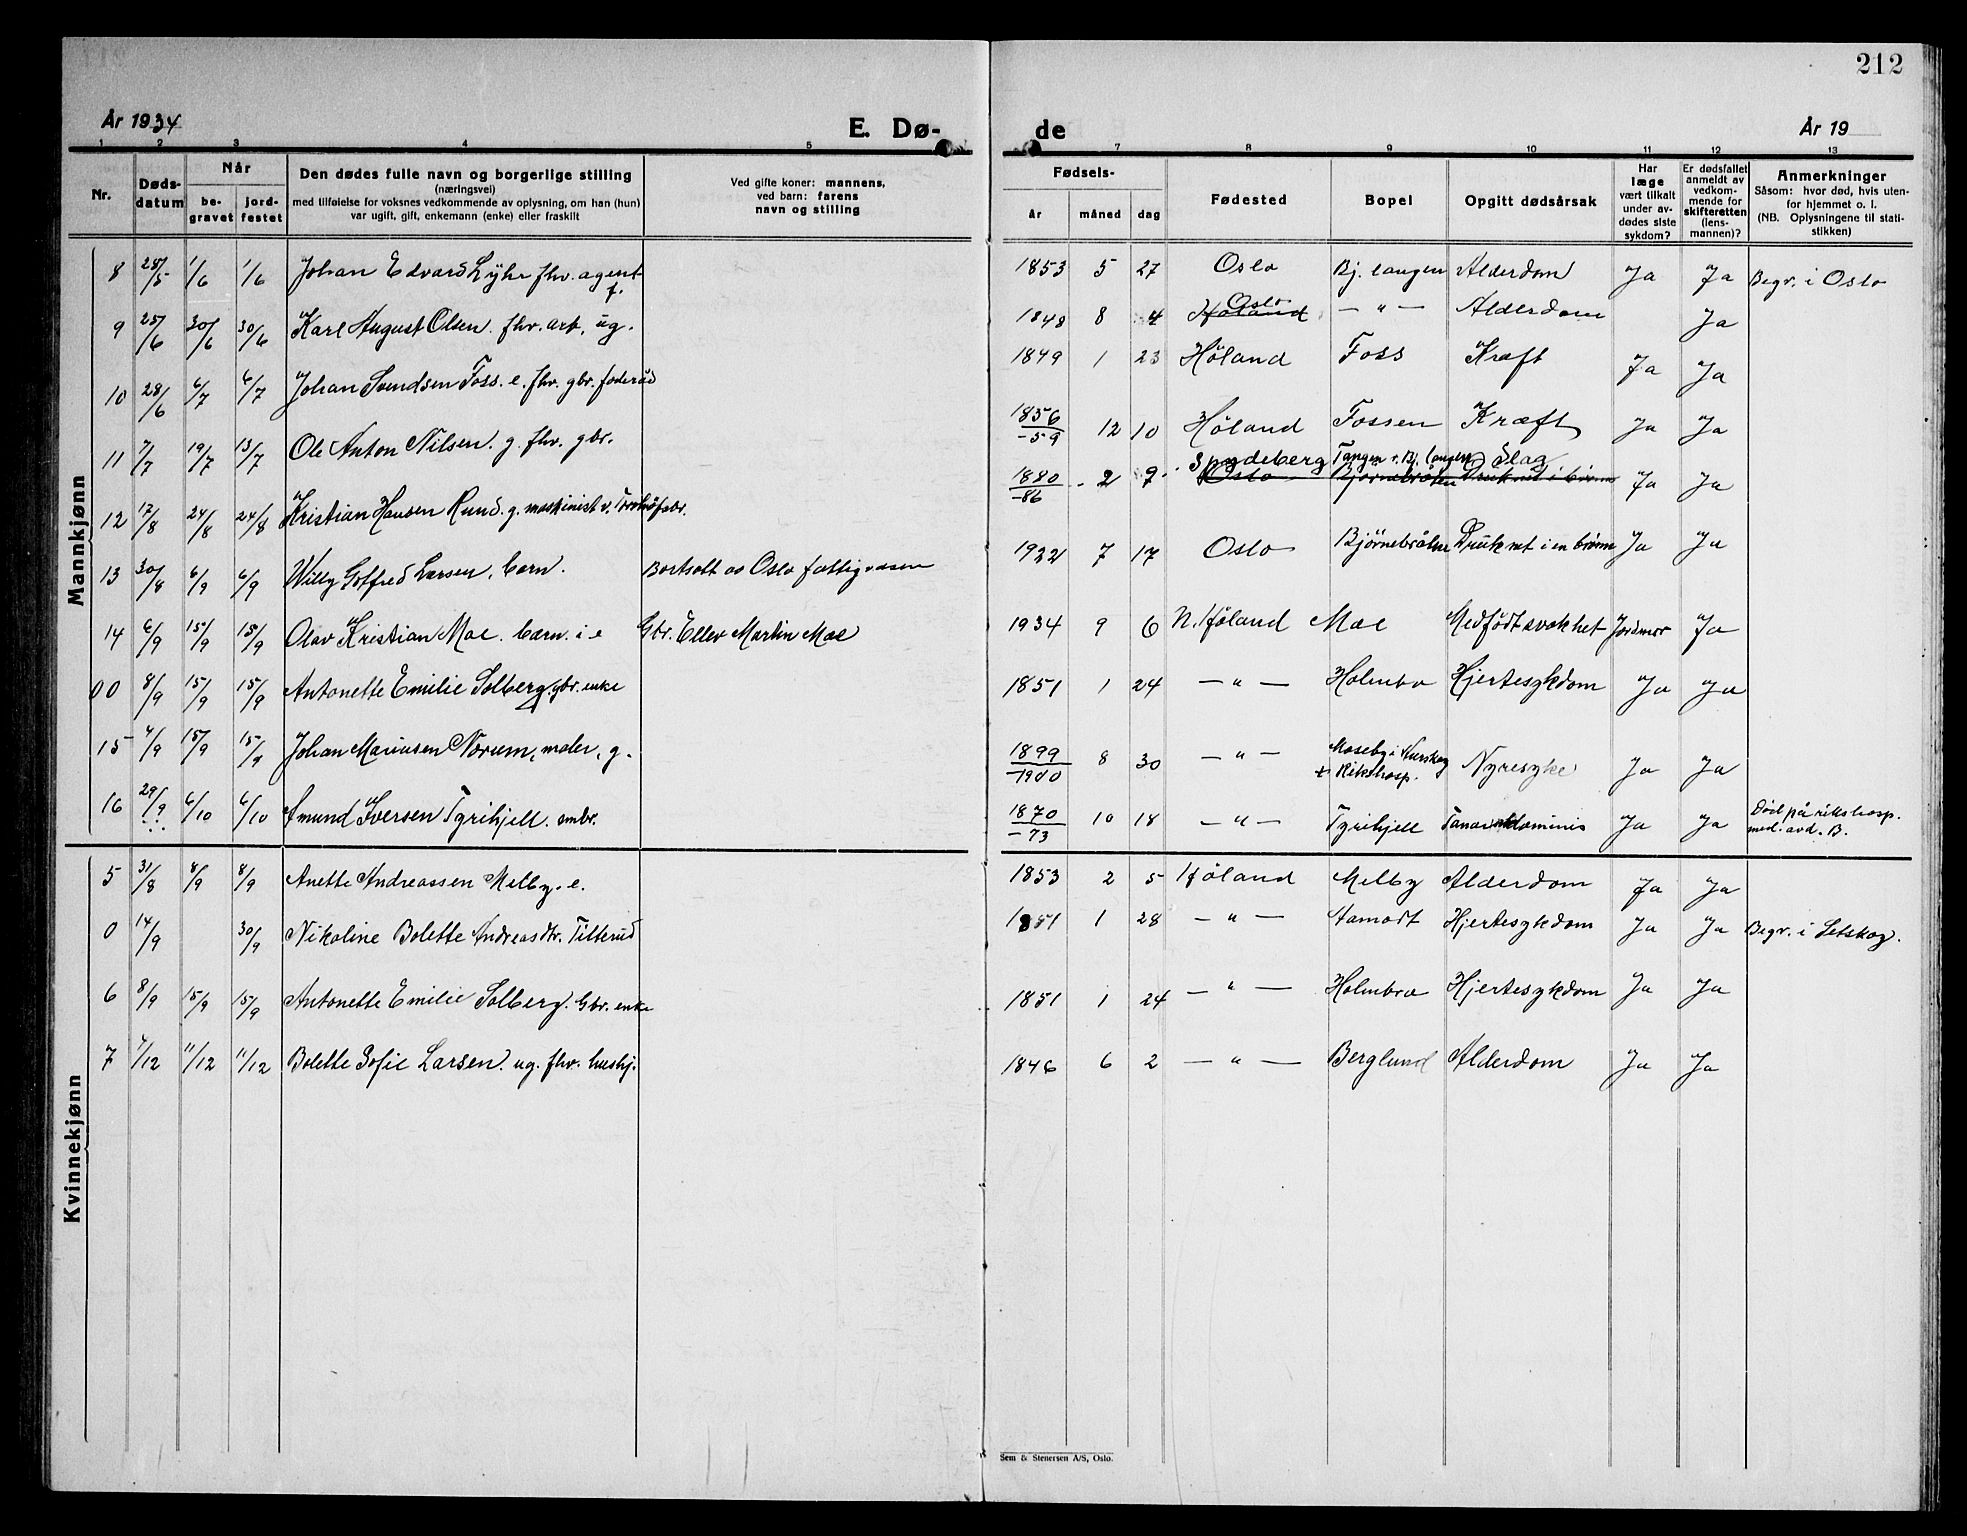 212
År 1934
E. Dø-
de
År 19
1 2 3 4 5 7 8 9 10 11 12 13
Nr.
Døds-
datum
Når
be-
gravet
jord-
festet
Den dødes fulle navn og borgerlige stilling
(næringsvei)
med tilføielse for voksnes vedkommende av oplysning, om han (hun)
var ugift, gift, enkemann (enke) eller fraskilt
Ved gifte koner: mannens,
ved barn: farens
navn og stilling
Fødsels-
år måned dag
Fødested
Bopel
Opgitt dødsårsak
Har
læge
vært tilkalt
under av-
dødes siste
sykdom?
Er dødsfallet
anmeldt av
vedkom-
mende for
skifteretten
(lens-
mannen)?
Anmerkninger
Såsom: hvor død, hvis uten-
for hjemmet o. l.
(NB. Oplysningene til stati-
stikken)
Mannkjønn
8 28/5 1/6 1/6 Johan Edvard Lyhr fhv. agent f. 1853 5 27 Oslo Bj. langen Alderdom Ja Ja Begr. i Oslo
9 25/6 30/6 30/6 Karl August Olsen. fhv. arb. ug. 1848 8 4 Høland Oslo — " — Alderdom Ja
10 28/6 6/7 6/7 Johan Svendsen Foss. e. fhv. gbr. foderåd 1849 1 23 Høland Foss Kræft Ja Ja
11 7/7 19/7 13/7 Ole Anton Nilsen. g. fhv. gbr. 1856/-59 12 10 Høland Fossen Kræft Ja Ja
12 17/8 24/8 24/8 Kristian Hansen Rund. g. maskinist v. 1880/-86 2 9 Oslo Spydeberg Bjørnebråten Tangen v. Bj. langen Druknet i brønn Slag Ja Ja
13 30/8 6/9 6/9 Willy Gotfred Larsen, barn. Bortsatt av Oslo fattigvæsen 1922 7 17 Oslo Bjørnebråten Druknet i en brønn Ja Ja
14 6/9 15/9 15/9 Olav Kristian Moe. barn. i e Gbr. Ellev Martin Moe 1934 9 6 N. Høland Moe Medfødt svakhet Jordmor Ja
00 8/9 15/9 15/9 Antonette Emilie Solberg. gbr. enke 1851 1 24 — " — Holmbro Hjertesykdom Ja Ja
15 4/9 15/9 15/9 Johan Mariusen Norum, maler, g. 1899/-1900 8 30 — " — Moseby i Aurskog + Rikshosp. Nyresyke Ja Ja
16 29/9 6/10 6/10 Amund Iversen Tyrihjell. smbr. 1870/-73 10 18 — " — Tyrihjell Ja Ja Død på rikshosp. med. avd. B.
Kvinnekjønn
5 31/8 8/9 8/9 Anette Andreassen Melby. e. 1853 2 5 Høland Melby Alderdom Ja Ja
0 14/9 30/9 Nikoline Bolette Andreasdtr. Tilterud 1851 1 28 — " — Aamodt Hjertesykdom Ja Ja Begr. i Setskog.
6 8/9 15/9 15/9 Antonette Emilie Solberg. Gbr. enke 1851 1 24 — " — Holmbro Hjertesykdom Ja Ja
7 7/12 11/12 11/12 Bolette Sofie Larsen. ug. fhv. hushj. 1846 6 2 — " — Berglund Alderdom Ja Ja
Sem & Stenersen A/S, Oslo.